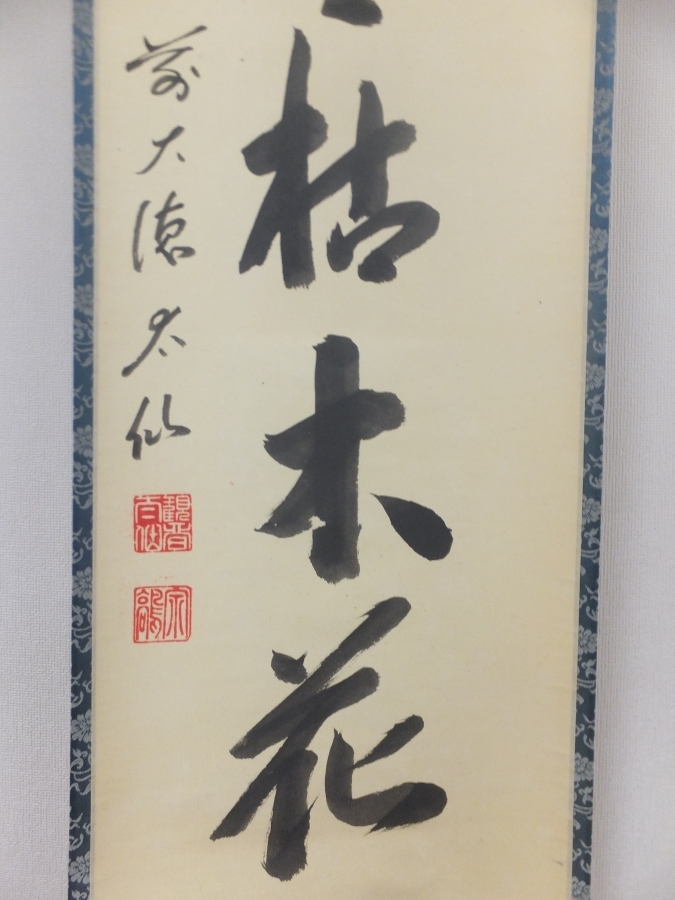 枯木花
前大徳太仙